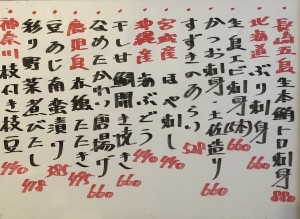 長崎五島 生本鮪トロ刺身 880
北海道 ぶり刺身 660
エビ刺身(5本) 660
かつお刺身・土佐造り 660
すずきのあらい 528
宮城産 ほや刺し 440
沖縄産 海ぶどう 440
干し甘鯛開き焼き 660
なめたかれい唐揚げ 660
鹿児島 赤鶏たたき 495
豆あじ南蛮漬け 385
彩り野菜煮びたし 418
神奈川 枝付き枝豆 440